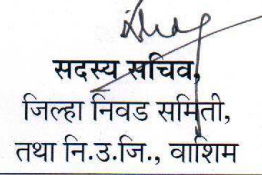 सदस्य सचिव,
जिल्हा निवड समिती,
तथा नि.उ.जि., वाशिम